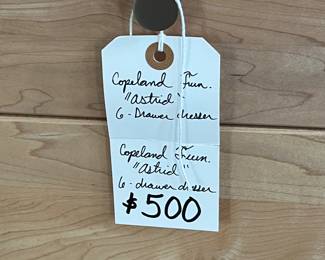 Copeland Furn.
"Astrid"
6-Drawer dresser
Copeland Furn.
"Astrid"
6-drawer dresser
$500